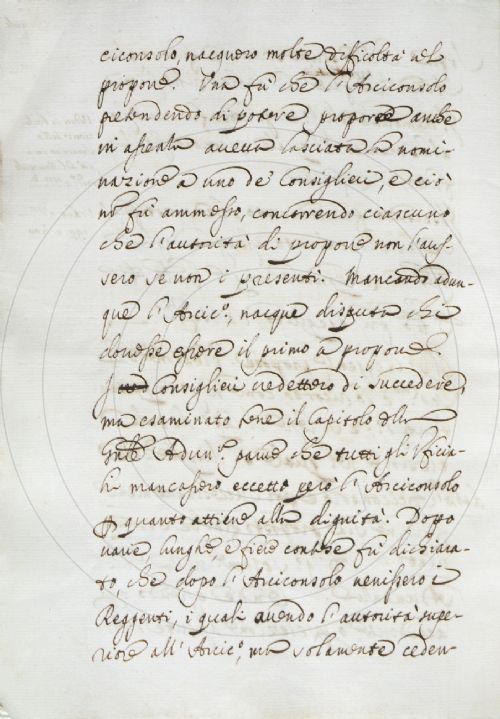 ciconsolo, nacquero molte difficoltà nel
propone. Una fu che l'Arciconsolo
pretendendo di potere proporre anche
in asenza aveva lasciata la nomi-
nazione a uno de' Consiglieri, e ciò
nō fu ammesso, concorrendo ciascuno
che l'autorità di propone non l'aus-
sero se non i presenti. Mancando adun-
que l'Arcic.º, nacque disputa chi
dovesse essere il primo a propone.
I Consiglieri credettero di succedere,
ma esaminato bene il Capitolo dll
Gnāle Adun.ª parve che tutti gli Uficia-
li mancassero eccetto però l'Arciconsolo
ꝑ quanto attiene alla dignità. Dopo
varie lunghe e fiere contese fu dichiara-
to, che dopo l'Arciconsolo venissero i
Reggenti, i quali avendo l'autorità supe-
riore all'Arcic.º, ma solamente ceden-